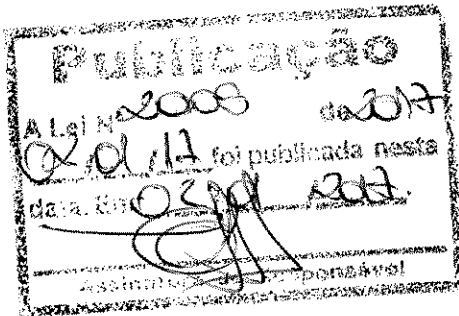 Publicação
A Lei Nº 2008 de 2017
02,01,17 foi publicada nesta
data. Em 02,01,2017.
Assinatura do responsável